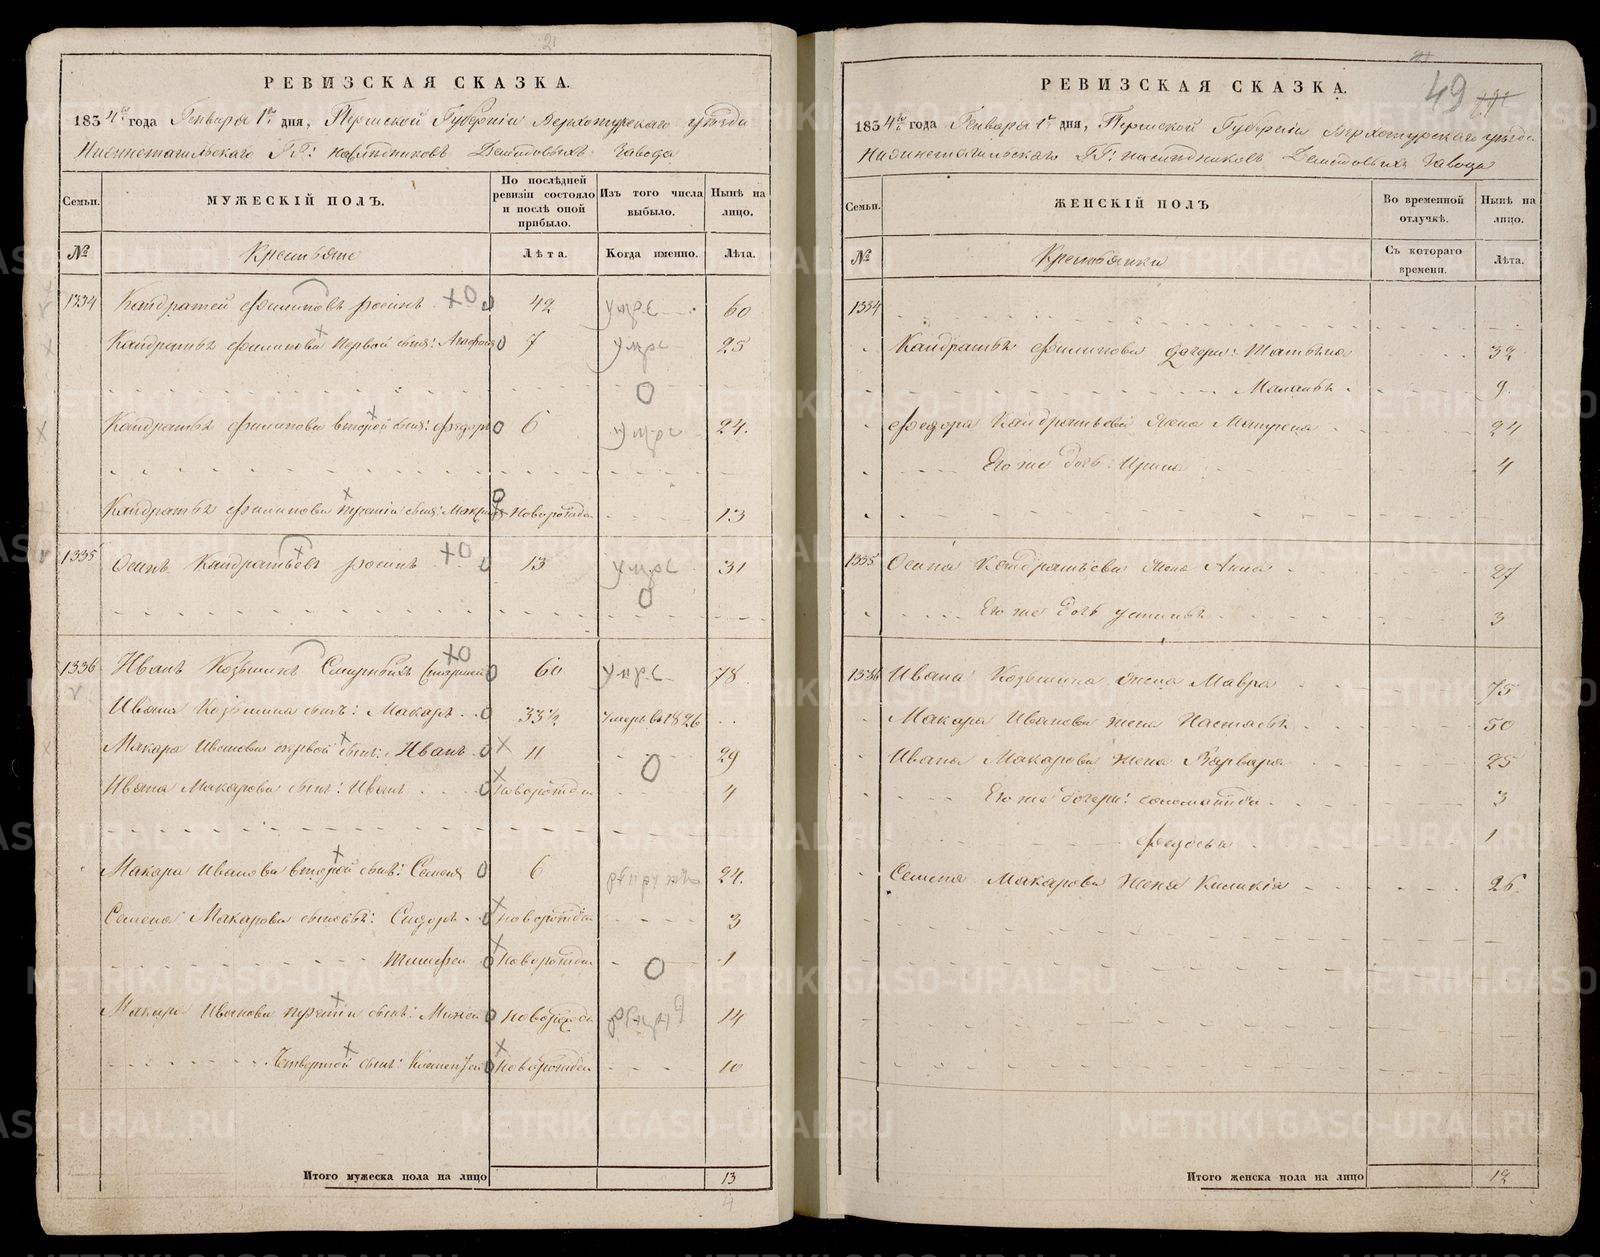 РЕВИЗСКАЯ СКАЗКА.
1834го года Генваря 1го дня, Пермской Губерніи Верхотурскаго уѣзда
Нижнетагильскаго ГГ: наслѣдниковъ Демидовыхъ Завода
Семьи.
МУЖЕСКІЙ ПОЛЪ.
По послѣдней ревизіи состояло и послѣ оной прибыло.
Изъ того числа выбыло.
Нынѣ на лицо.
№
Крестьяне
Лѣта.
Когда именно.
Лѣта.
1334 Кондратей Филиповъ 42 умре 60
Кондратья Филипова первой сынъ: 7 умре 25
Кондратья Филипова второй сынъ: Федоръ 6 умре 24.
Кондратья Филипова третій сынъ: Новорожден 13
1335 Осипъ Кондратьевъ 13 умре 31
1336 Иванъ Козьминъ Смирныхъ 60 умре 78.
Ивана Козьмина сынъ: Макаръ 33½ Умеръ въ 1826
Макара Иванова первой сынъ: Иванъ 11 29
Ивана Макарова сынъ: Иванъ Новорожден 4
Макара Иванова второй сынъ: Семенъ 6 24.
Семена Макарова сыновья: Сидоръ Новорожден 3
Тимофей Новорожден 1
Макара Иванова третій сынъ: Новорожден 14
Четвертой сынъ: Новорожден 10
Итого мужеска пола на лицо 13
РЕВИЗСКАЯ СКАЗКА.
49
1834го года Генваря 1го дня, Пермской Губерніи Верхотурскаго уѣзда
Нижнетагильскаго ГГ: наслѣдниковъ Демидовыхъ Завода
Семьи.
ЖЕНСКІЙ ПОЛЪ
Во временной отлучкѣ.
Нынѣ на лицо.
№
Крестьянки
Съ котораго времени.
Лѣта.
1334
Кондратья Филипова дочери: Татьяна 32
9.
Федора Кондратьева жена Матрена 24
Его же дочь: Ирина 4
1335 Осипа Кондратьева жена Анна 27
Его же дочь 3
1336 Ивана Козьмина жена Мавра 75
Макара Иванова жена Настасья 50
Ивана Макарова жена Варвара 25
Его же дочери: 3
Федосья 1
Семена Макарова жена 26.
Итого женска пола на лицо 12
METRIKI.GASO-URAL.RU